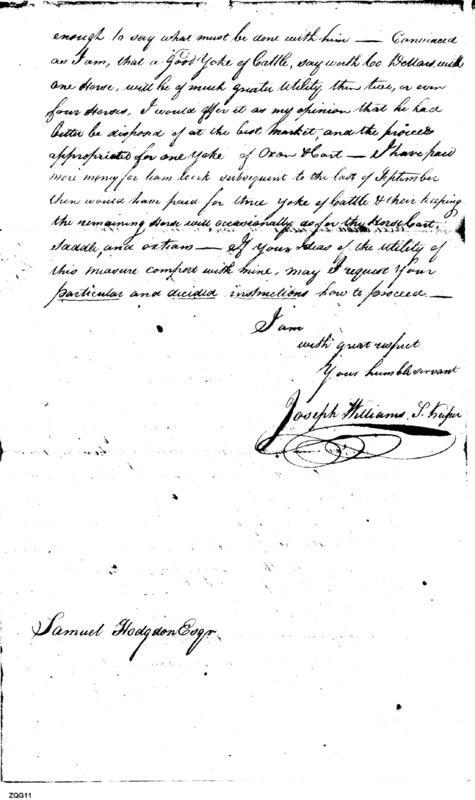 enough to say what must be done with him — Convinced
as I am, that a Good Yoke of Cattle, say worth 60 Dollars, with
one Horse, will be of much greater Utility then two, or even
four Horses, I would offer it as my opinion that he had
better be disposed of at the best market, and the proceeds
appropriated for one Yoke of Oxen & Cart — I have paid
more money for team work subsequent to the last of September
then would have paid for three Yoke of Cattle & their keeping
the remaining Horse will occasionally do for the Horse Cart,
Saddle, and extras — If Your Ideas of the utility of
this measure comport with mine, may I request Your
particular and decided instructions how to proceed —
I am
with great respect
Your humble servant
Joseph Williams, S. Keeper
Samuel Hodgdon Esqr
ZQG11